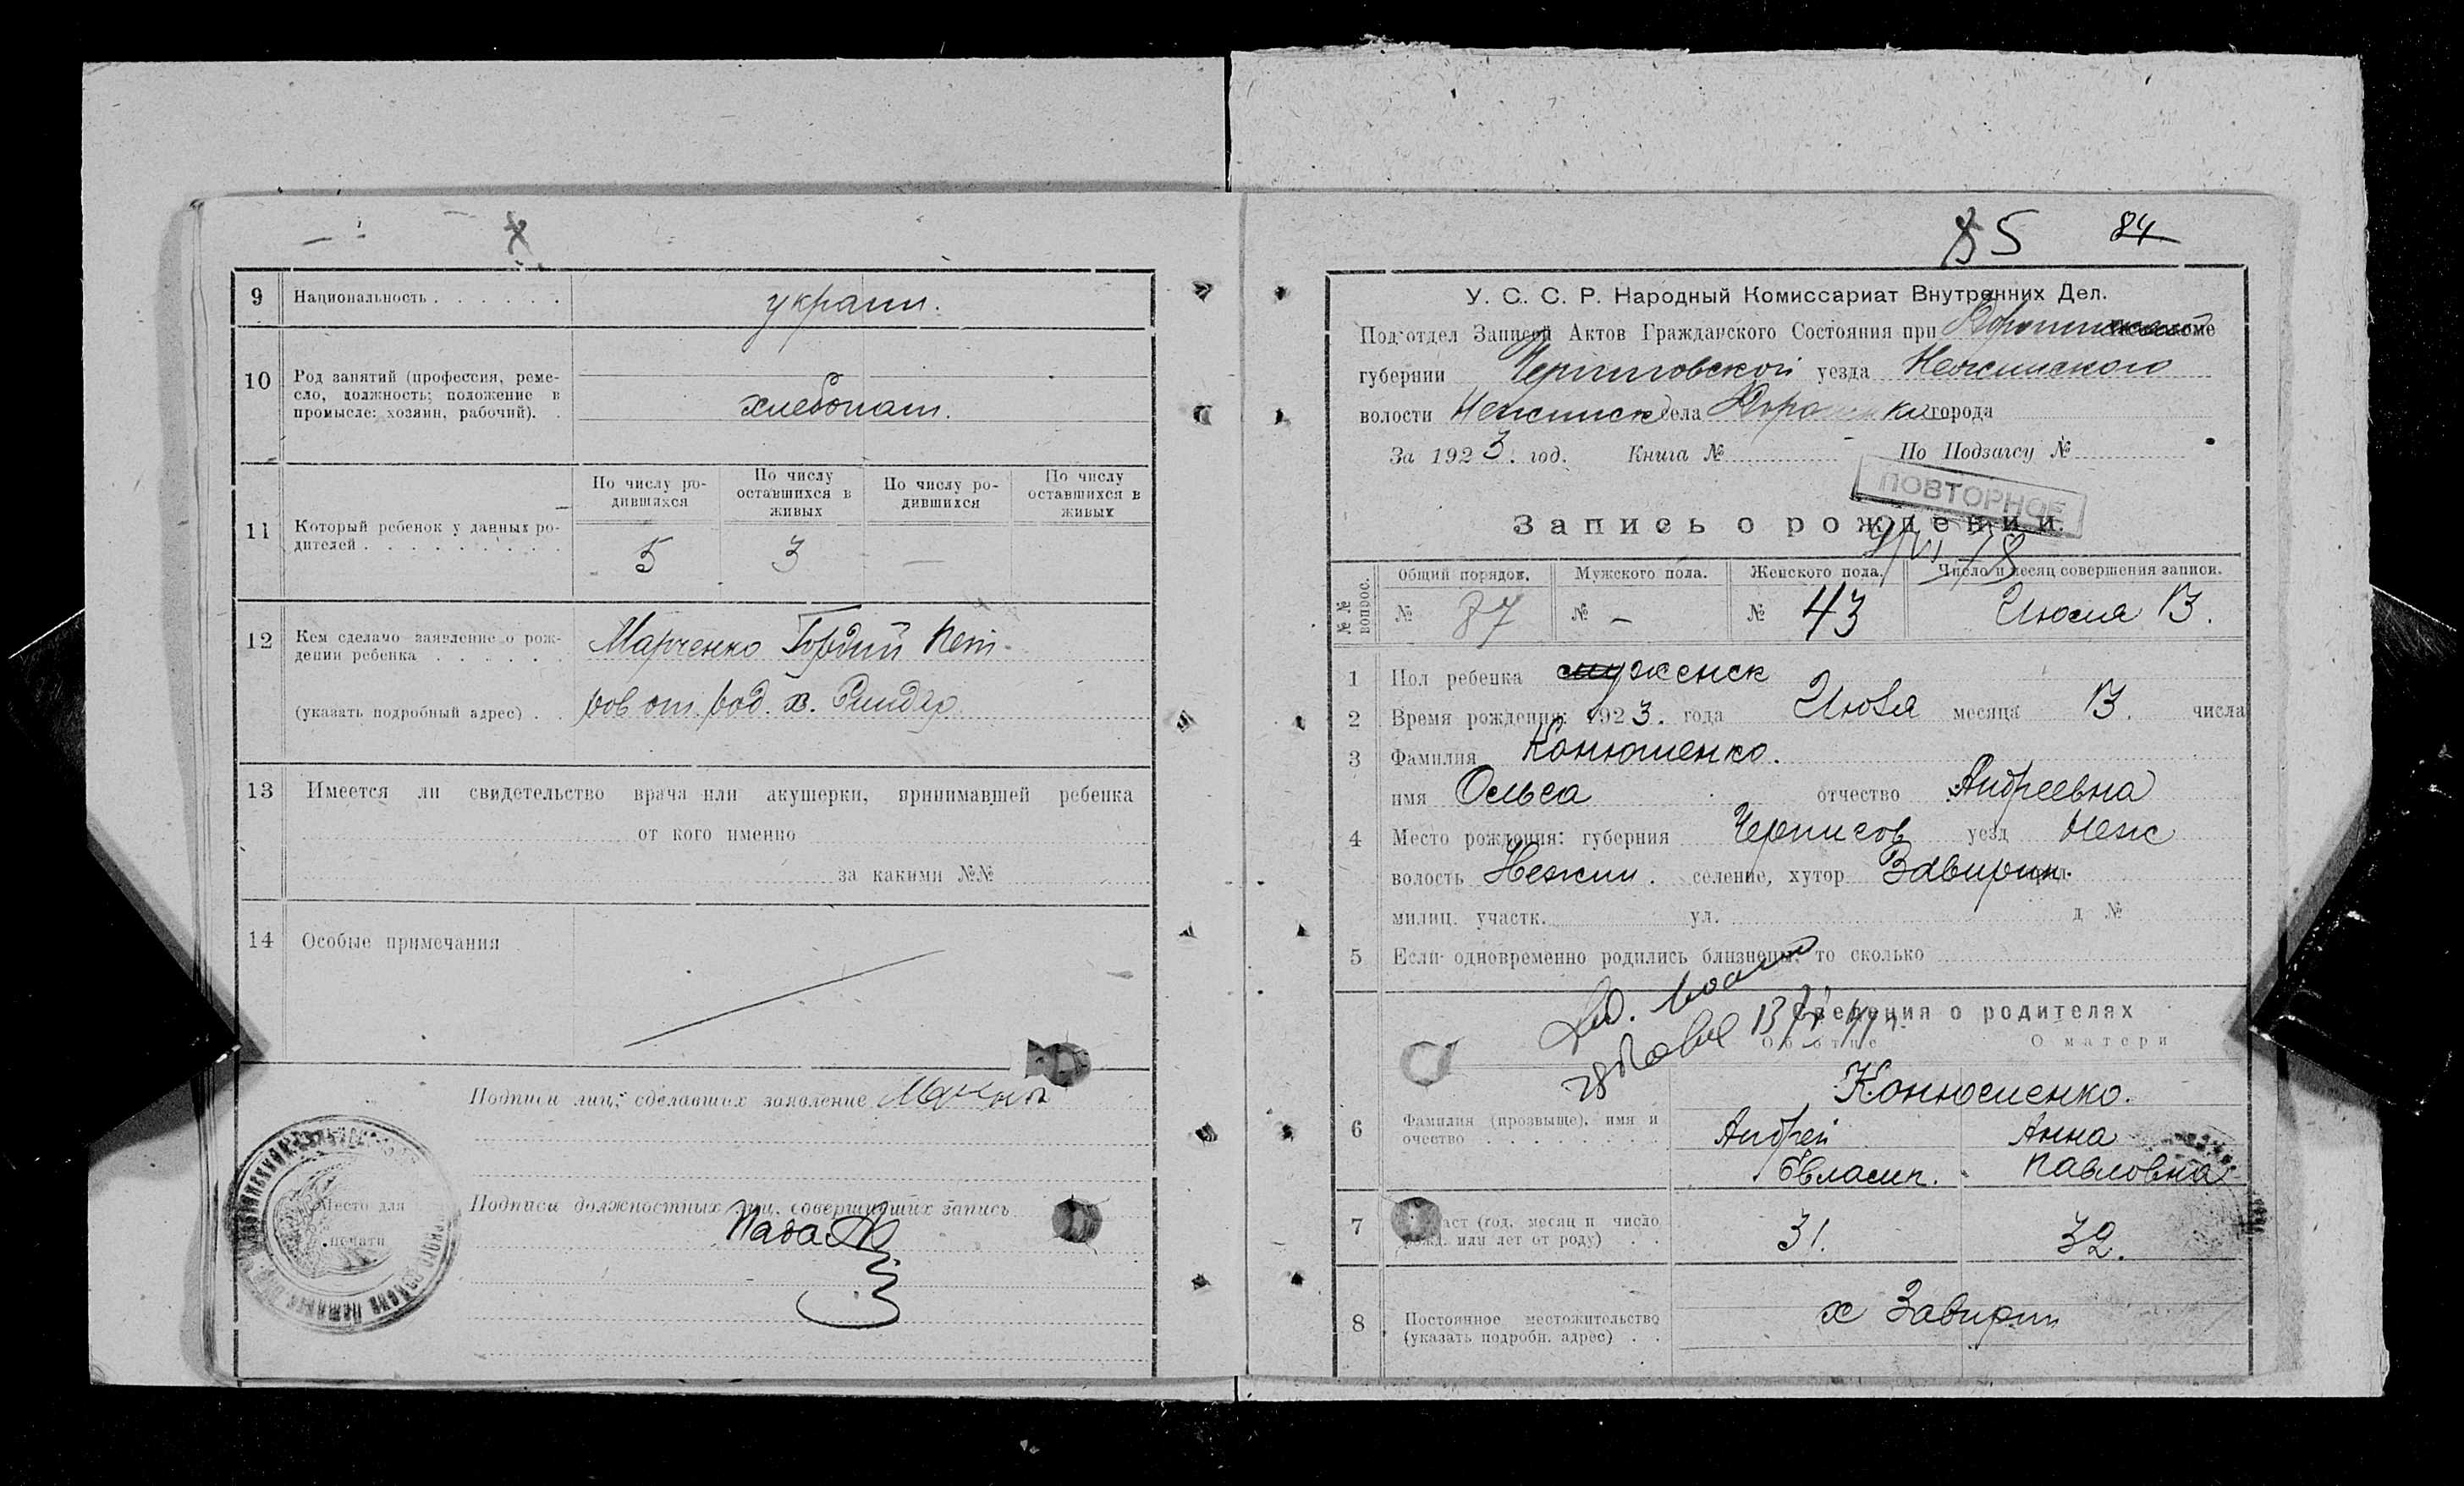 9 Национальность . . . . . . украин.
10 Род занятий (профессия, реме-
сло, должность; положение в
промысле: хозяин, рабочий). . хлебопаш.
11 Который ребенок у данных ро-
дителей . . . . . . . . .
По числу ро-
дившихся
По числу
оставшихся в
живых
По числу ро-
дившихся
По числу
оставшихся в
живых
5 3 —
12 Кем сделано заявление о рож-
дении ребенка . . . . . . Марченко Гордий
(указать подробный адрес) . .
13 Имеется ли свидетельство врача или акушерки, принимавшей ребенка
от кого именно
за какими №№
14 Особые примечания
Подписи лиц, сделавших заявление
Подписи должностных лиц, совершивших запись
Место для
печати
85 84
У. С. С. Р. Народный Комиссариат Внутренних Дел.
Подотдел Записей Актов Гражданского Состояния при
губернии Черниговской уезда Нежинского
волости Нежинск села города
За 1923. год. Книга № По Подзагсу №
ПОВТОРНОЕ
Запись о рождении.
№ № вопрос.
Общий порядок. Мужского пола. Женского пола. Число и месяц совершения записи.
№ 87 № – № 43 Июля 13.
1 Пол ребенка женск
2 Время рождения: 1923. года Июля месяца 13. числа
3 Фамилия Конюшенко.
имя Ольга отчество Андреевна
4 Место рождения: губерния Чернигов уезд Неж
волость Нежин. селение, хутор
милиц. участк. ул. д №
5 Если одновременно родились близнецы, то сколько
Сведения о родителях
О б о т ц е О м а т е р и
Конюшенко.
6 Фамилия (прозвыще), имя и
очество . . . . . . . . Андрей Анна
Павловна
7 Возраст (год, месяц и число
рожд. или лет от роду) . . 31. 32.
8 Постоянное местожительство
(указать подробн. адрес) . .